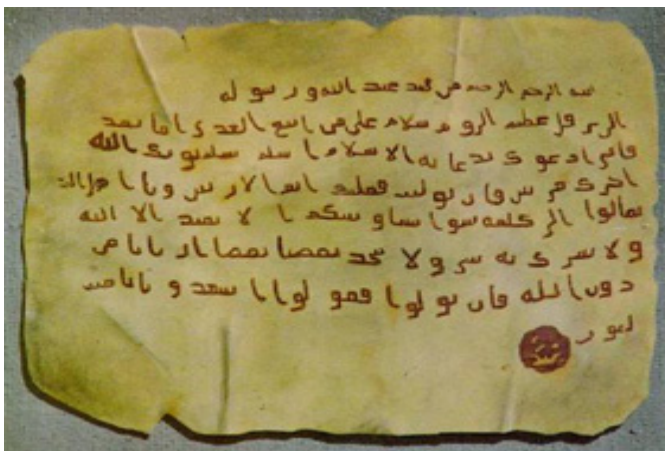 بسم الله الرحمن الرحيم من محمد عبد الله ورسوله
الى هرقل عظيم الروم سلام على من اتبع الهدى اما بعد
فانى ادعوك بدعاية الاسلام اسلم تسلم يوتك الله
اجرك مرتين فان توليت فعليك اثم الاريسين ويا اهل الكتاب
تعالوا الى كلمة سوا بيننا وبينكم ا لا نعبد الا الله
ولا نشرك به شيئا ولا يتخذ بعضنا بعضا اربابا من
دون الله فان تولوا فقولوا اشهدوا بانا مسلـ
ـمون